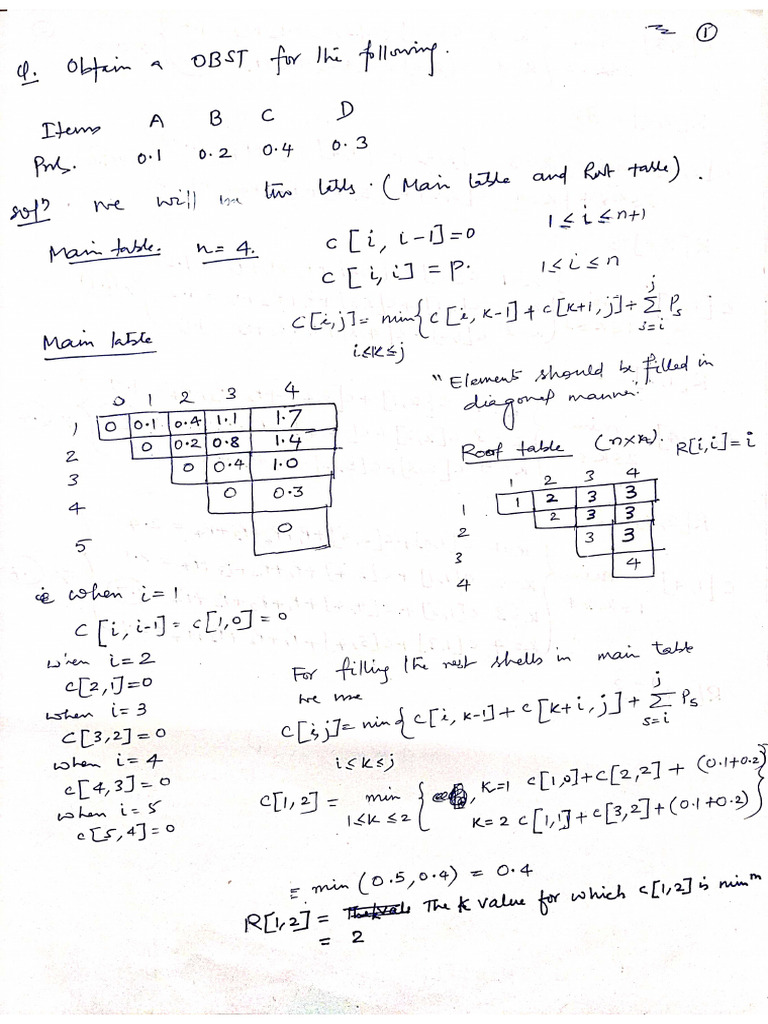 ①
Q. Obtain a OBST for the following.
Items A B C D
Prob. 0.1 0.2 0.4 0.3
Solⁿ we will use two tables. (Main table and Root table).
Main table. n = 4. C[i, i-1] = 0 1 ≤ i ≤ n+1
C[i, i] = P. 1 ≤ i ≤ n
C[i,j] = min{ C[i, K-1] + C[K+1, j] + Σ Ps
j
s=i
i≤K≤j
Main table
"Element should be filled in
diagonal manner."
0 1 2 3 4
1 0 0.1 0.4 1.1 1.7
2 0 0.2 0.8 1.4
3 0 0.4 1.0
4 0 0.3
5 0
Root table (n×n). R[i,i] = i
1 2 3 4
1 1 2 3 3
2 2 3 3
3 3 3
4 4
ie when i = 1
C[i, i-1] = C[1,0] = 0
when i = 2
C[2,1] = 0
when i = 3
C[3,2] = 0
when i = 4
C[4,3] = 0
when i = 5
C[5,4] = 0
For filling the rest shells in main table
we use
C[i,j] = min{ C[i, K-1] + C[K+i, j] + Σ Ps
j
s=i
i≤K≤j
C[1,2] = min { , K=1 C[1,0]+C[2,2] + (0.1+0.2)
1≤K≤2 K=2 C[1,1]+C[3,2]+(0.1+0.2) }
= min (0.5, 0.4) = 0.4
R[1,2] = The K value for which C[1,2] is minᵐ
= 2